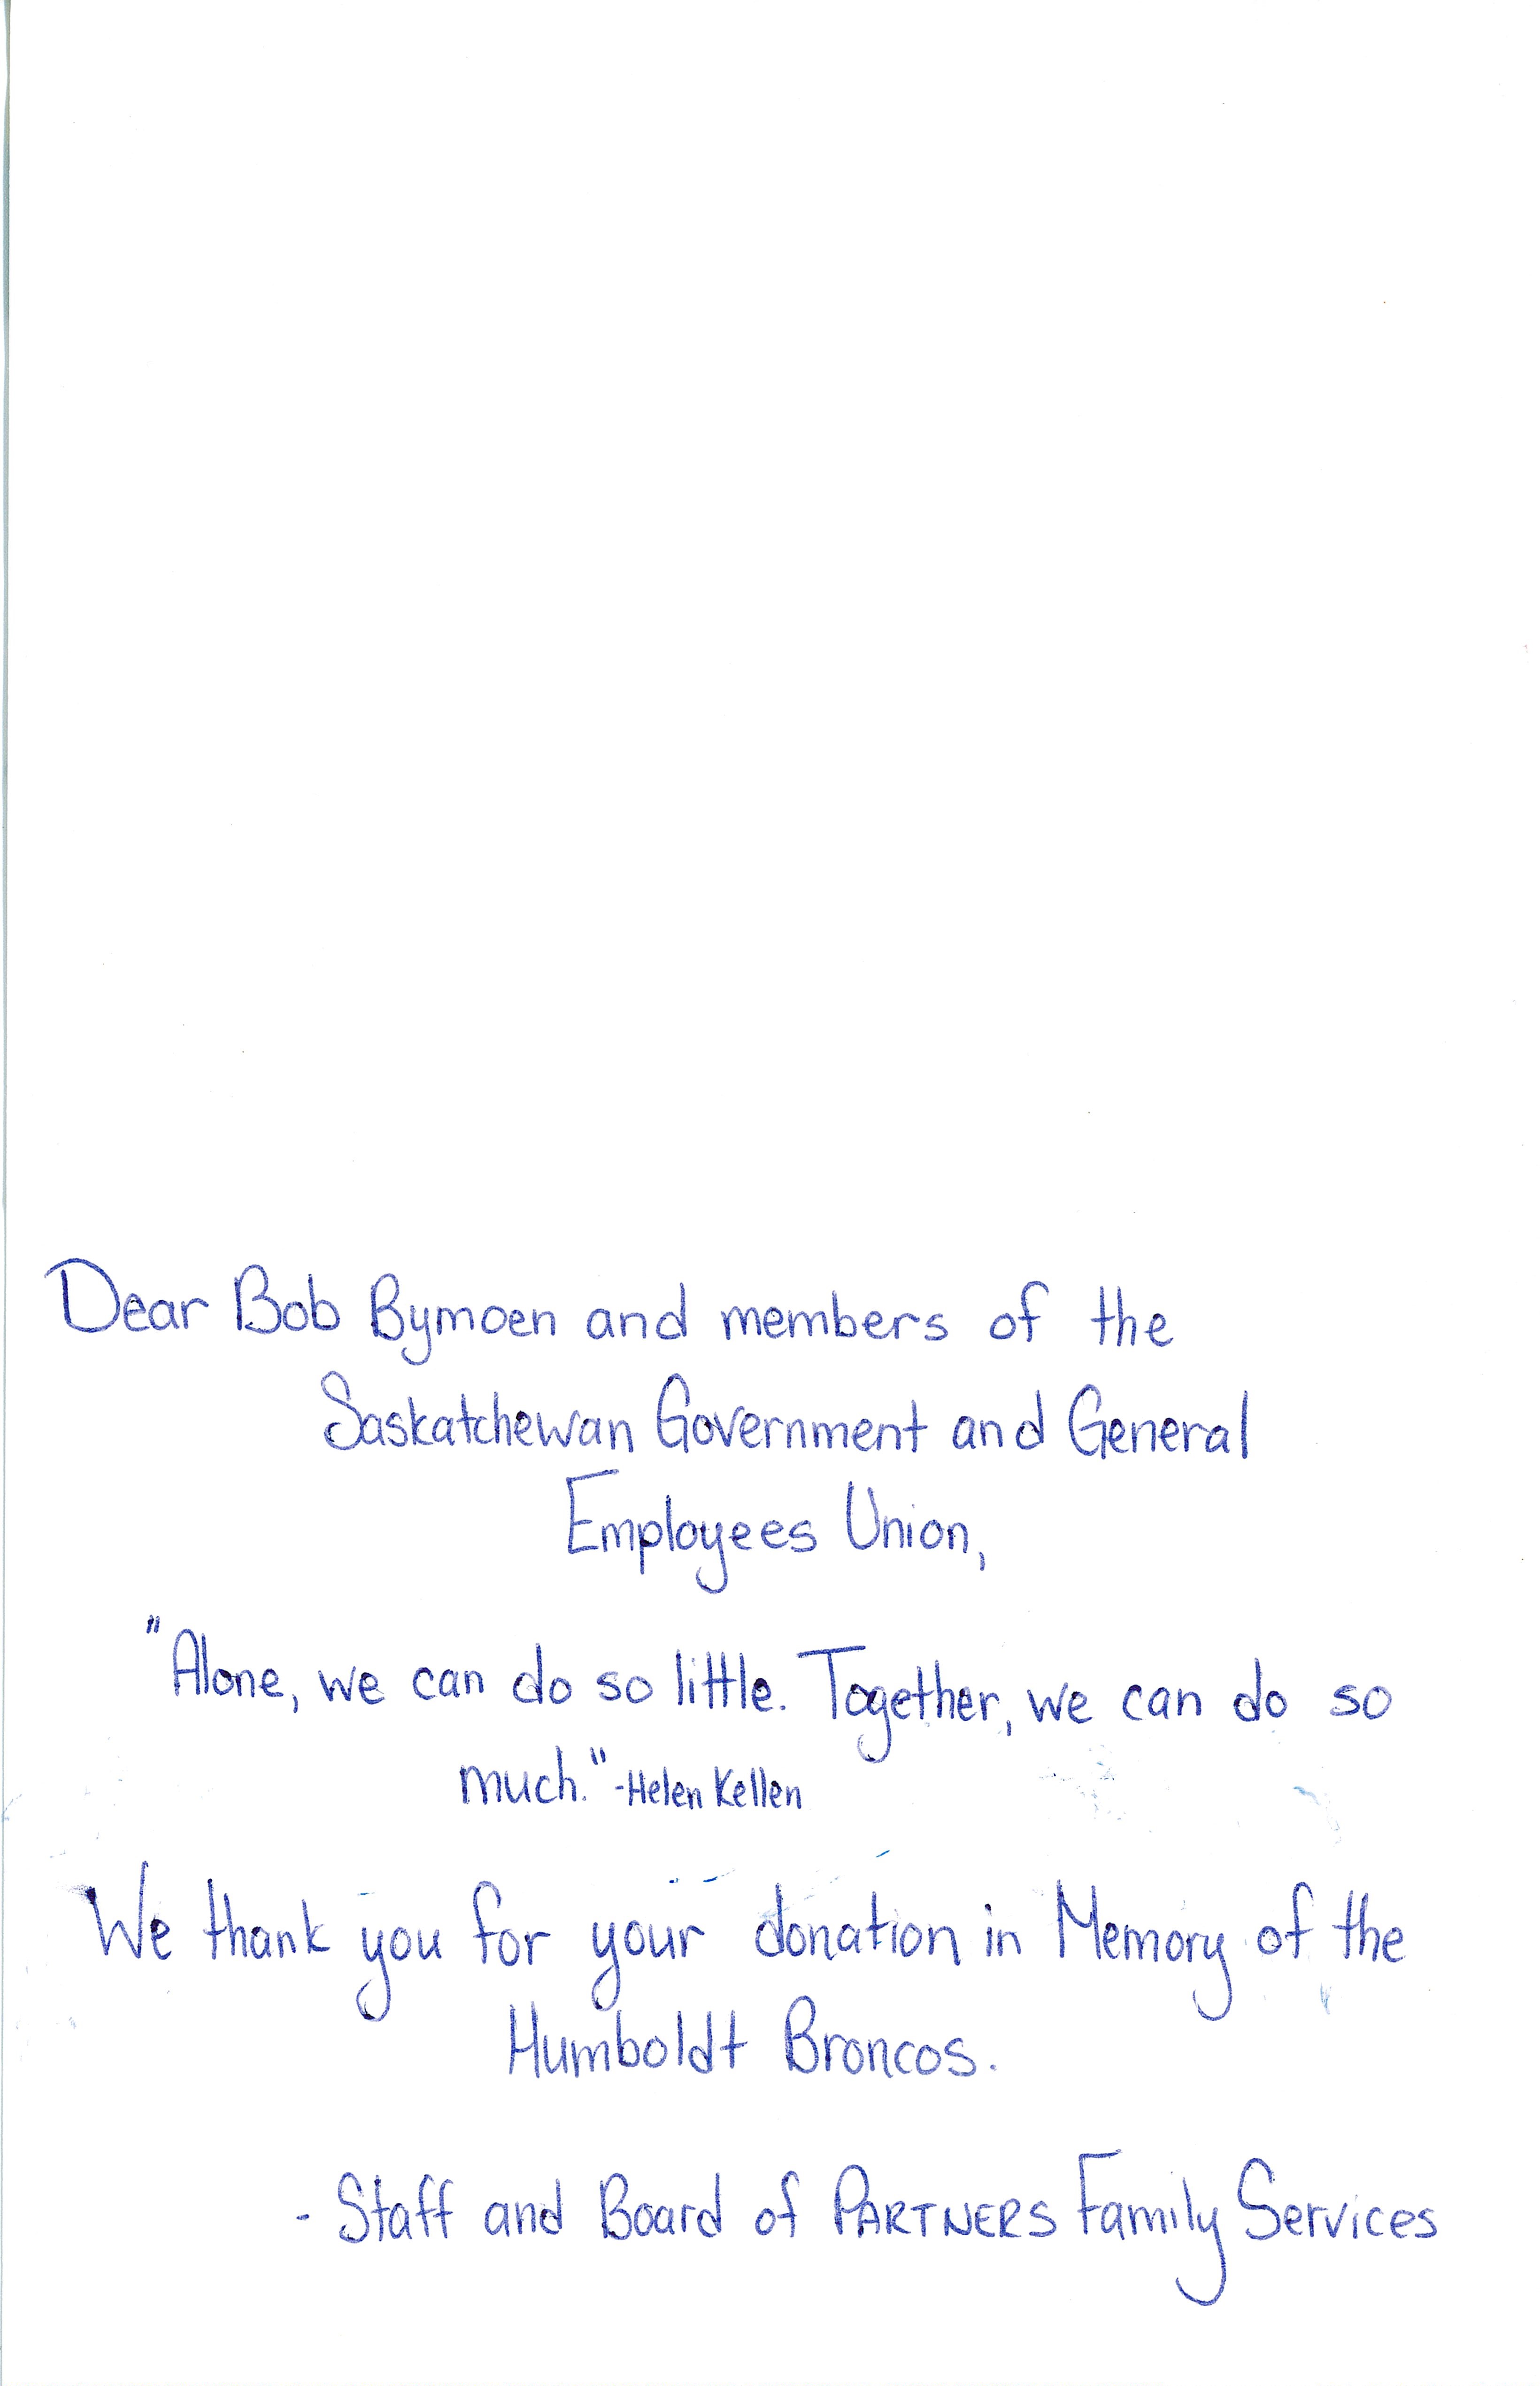 Dear Bob Bymoen and members of the
Saskatchewan Government and General
Employees Union,
"Alone, we can do so little. Together, we can do so
much." -Helen Kellen
We thank you for your donation in Memory of the
Humboldt Broncos.
- Staff and Board of PARTNERS Family Services